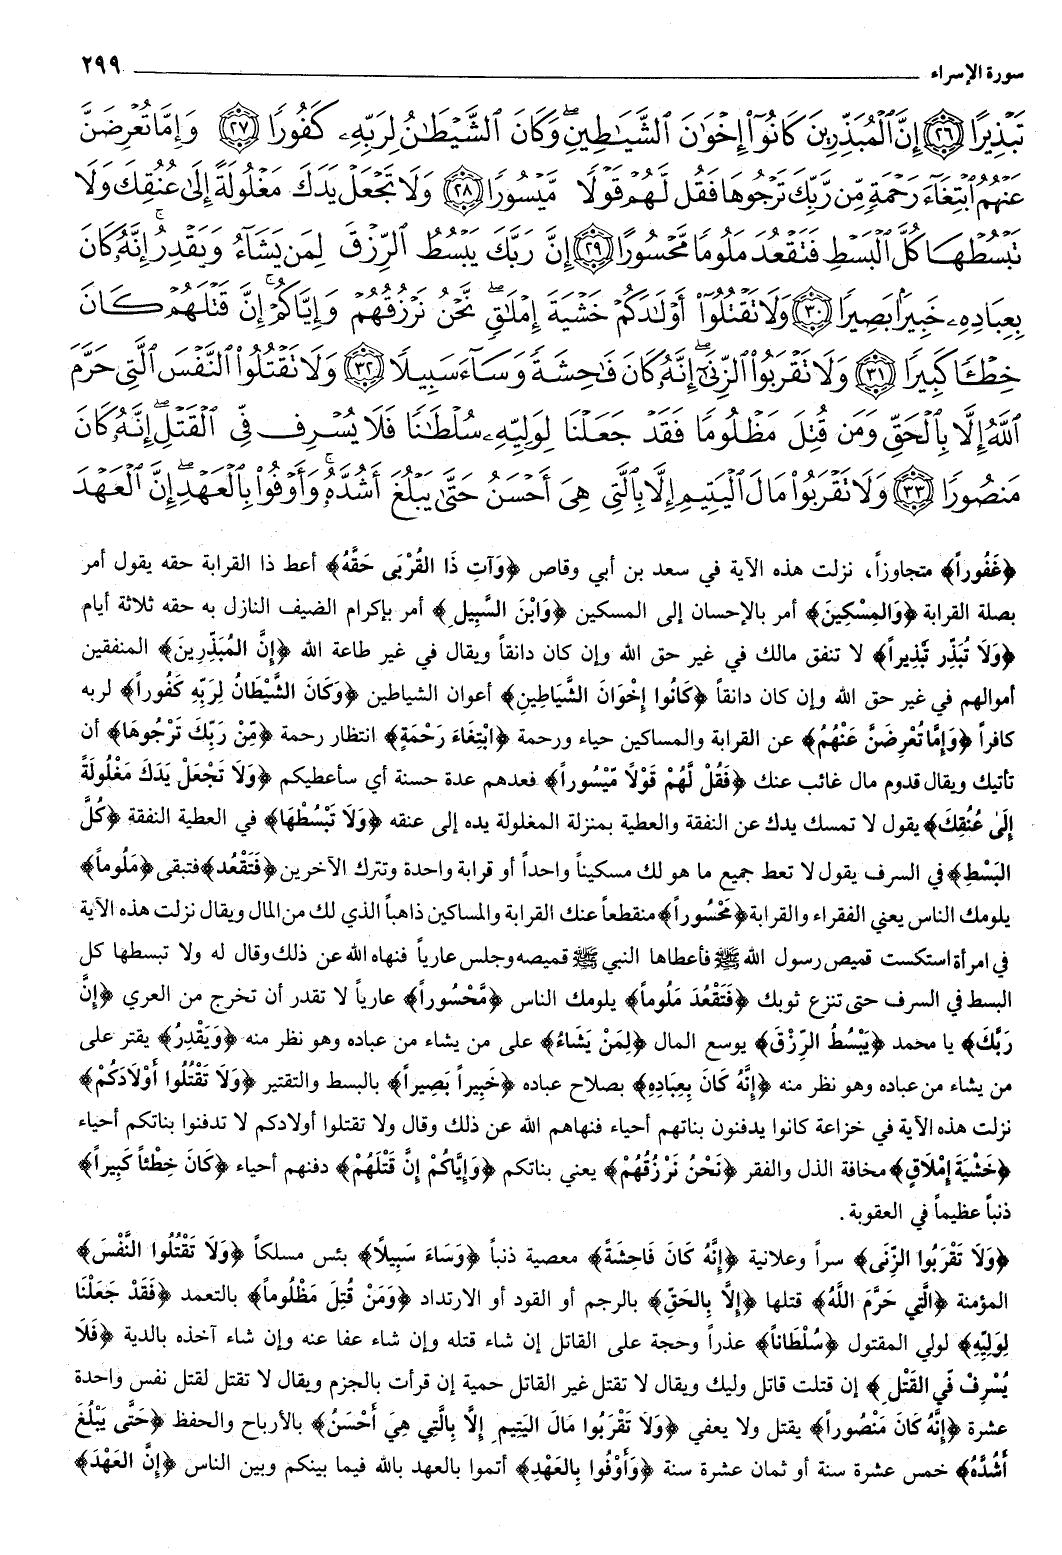 سورة الإسراء ٢٩٩
تَبْذِيرًا ٢٦ إِنَّ ٱلْمُبَذِّرِينَ كَانُوٓا۟ إِخْوَٰنَ ٱلشَّيَـٰطِينِ ۖ وَكَانَ ٱلشَّيْطَـٰنُ لِرَبِّهِۦ كَفُورًا ٢٧ وَإِمَّا تُعْرِضَنَّ
عَنْهُمُ ٱبْتِغَآءَ رَحْمَةٍ مِّن رَّبِّكَ تَرْجُوهَا فَقُل لَّهُمْ قَوْلًا مَّيْسُورًا ٢٨ وَلَا تَجْعَلْ يَدَكَ مَغْلُولَةً إِلَىٰ عُنُقِكَ وَلَا
تَبْسُطْهَا كُلَّ ٱلْبَسْطِ فَتَقْعُدَ مَلُومًا مَّحْسُورًا ٢٩ إِنَّ رَبَّكَ يَبْسُطُ ٱلرِّزْقَ لِمَن يَشَآءُ وَيَقْدِرُ ۚ إِنَّهُۥ كَانَ
بِعِبَادِهِۦ خَبِيرًۢا بَصِيرًا ٣٠ وَلَا تَقْتُلُوٓا۟ أَوْلَـٰدَكُمْ خَشْيَةَ إِمْلَـٰقٍ ۖ نَّحْنُ نَرْزُقُهُمْ وَإِيَّاكُمْ ۚ إِنَّ قَتْلَهُمْ كَانَ
خِطْـًٔا كَبِيرًا ٣١ وَلَا تَقْرَبُوا۟ ٱلزِّنَىٰٓ ۖ إِنَّهُۥ كَانَ فَـٰحِشَةً وَسَآءَ سَبِيلًا ٣٢ وَلَا تَقْتُلُوا۟ ٱلنَّفْسَ ٱلَّتِى حَرَّمَ
ٱللَّهُ إِلَّا بِٱلْحَقِّ ۗ وَمَن قُتِلَ مَظْلُومًا فَقَدْ جَعَلْنَا لِوَلِيِّهِۦ سُلْطَـٰنًا فَلَا يُسْرِف فِّى ٱلْقَتْلِ ۖ إِنَّهُۥ كَانَ
مَنصُورًا ٣٣ وَلَا تَقْرَبُوا۟ مَالَ ٱلْيَتِيمِ إِلَّا بِٱلَّتِى هِىَ أَحْسَنُ حَتَّىٰ يَبْلُغَ أَشُدَّهُۥ ۚ وَأَوْفُوا۟ بِٱلْعَهْدِ ۖ إِنَّ ٱلْعَهْدَ
﴿غَفُوراً﴾ متجاوزاً، نزلت هذه الآية في سعد بن أبي وقاص ﴿وَآتِ ذَا القُرْبَى حَقَّهُ﴾ أعط ذا القرابة حقه يقول أمر
بصلة القرابة ﴿وَالمِسْكِينَ﴾ أمر بالإحسان إلى المسكين ﴿وَابْنَ السَّبِيلِ﴾ أمر بإكرام الضيف النازل به حقه ثلاثة أيام
﴿وَلَا تُبَذِّر تَبْذِيراً﴾ لا تنفق مالك في غير حق الله وإن كان دانقاً ويقال في غير طاعة الله ﴿إِنَّ المُبَذِّرِينَ﴾ المنفقين
أموالهم في غير حق الله وإن كان دانقاً ﴿كَانُوا إِخْوَانَ الشَّيَاطِينِ﴾ أعوان الشياطين ﴿وَكَانَ الشَّيْطَانُ لِرَبِّهِ كَفُوراً﴾ لربه
كافراً ﴿وَإِمَّا تُعْرِضَنَّ عَنْهُمُ﴾ عن القرابة والمساكين حياء ورحمة ﴿ابْتِغَاءَ رَحْمَةٍ﴾ انتظار رحمة ﴿مِّنْ رَبِّكَ تَرْجُوهَا﴾ أن
تأتيك ويقال قدوم مال غائب عنك ﴿فَقُلْ لَّهُمْ قَوْلاً مَّيْسُوراً﴾ فعدهم عدة حسنة أي سأعطيكم ﴿وَلَا تَجْعَلْ يَدَكَ مَغْلُولَةً
إِلَى عُنُقِكَ﴾ يقول لا تمسك يدك عن النفقة والعطية بمنزلة المغلولة يده إلى عنقه ﴿وَلَا تَبْسُطْهَا﴾ في العطية النفقة ﴿كُلَّ
البَسْطِ﴾ في السرف يقول لا تعط جميع ما هو لك مسكيناً واحداً أو قرابة واحدة وتترك الآخرين ﴿فَتَقْعُد﴾ فتبقى ﴿مَلُوماً﴾
يلومك الناس يعني الفقراء والقرابة ﴿مَحْسُوراً﴾ منقطعاً عنك القرابة والمساكين ذاهباً الذي لك من المال ويقال نزلت هذه الآية
في امرأة استكست قميص رسول الله ﷺ فأعطاها النبي ﷺ قميصه وجلس عارياً فنهاه الله عن ذلك وقال له ولا تبسطها كل
البسط في السرف حتى تنزع ثوبك ﴿فَتَقْعُدَ مَلُوماً﴾ يلومك الناس ﴿مَّحْسُوراً﴾ عارياً لا تقدر أن تخرج من العري ﴿إِنَّ
رَبَّكَ﴾ يا محمد ﴿يَبْسُطُ الرِّزْقَ﴾ يوسع المال ﴿لِمَنْ يَشَاءُ﴾ على من يشاء من عباده وهو نظر منه ﴿وَيَقْدِرُ﴾ يقتر على
من يشاء من عباده وهو نظر منه ﴿إِنَّهُ كَانَ بِعِبَادِهِ﴾ بصلاح عباده ﴿خَبِيراً بَصِيراً﴾ بالبسط والتقتير ﴿وَلَا تَقْتُلُوا أَوْلَادَكُمْ﴾
نزلت هذه الآية في خزاعة كانوا يدفنون بناتهم أحياء فنهاهم الله عن ذلك وقال ولا تقتلوا أولادكم لا تدفنوا بناتكم أحياء
﴿خَشْيَةَ إِمْلَاقٍ﴾ مخافة الذل والفقر ﴿نَحْنُ نَرْزُقُهُمْ﴾ يعني بناتكم ﴿وَإِيَّاكُمْ إِنَّ قَتْلَهُمْ﴾ دفنهم أحياء ﴿كَانَ خِطْئاً كَبِيراً﴾
ذنباً عظيماً في العقوبة.
﴿وَلَا تَقْرَبُوا الزِّنَى﴾ سراً وعلانية ﴿إِنَّهُ كَانَ فَاحِشَةً﴾ معصية ذنباً ﴿وَسَاءَ سَبِيلاً﴾ بئس مسلكاً ﴿وَلَا تَقْتُلُوا النَّفْسَ﴾
المؤمنة ﴿الَّتِي حَرَّمَ اللَّهُ﴾ قتلها ﴿إِلَّا بِالحَقِّ﴾ بالرجم أو القود أو الارتداد ﴿وَمَنْ قُتِلَ مَظْلُوماً﴾ بالتعمد ﴿فَقَدْ جَعَلْنَا
لِوَلِيِّهِ﴾ لولي المقتول ﴿سُلْطَاناً﴾ عذراً وحجة على القاتل إن شاء قتله وإن شاء عفا عنه وإن شاء آخذه بالدية ﴿فَلَا
يُسْرِفْ فِّي القَتْلِ﴾ إن قتلت قاتل وليك ويقال لا تقتل غير القاتل حمية إن قرأت بالجزم ويقال لا تقتل لقتل نفس واحدة
عشرة ﴿إِنَّهُ كَانَ مَنْصُوراً﴾ يقتل ولا يعفي ﴿وَلَا تَقْرَبُوا مَالَ اليَتِيمِ إِلَّا بِالَّتِي هِيَ أَحْسَنُ﴾ بالأرباح والحفظ ﴿حَتَّى يَبْلُغَ
أَشُدَّهُ﴾ خمس عشرة سنة أو ثمان عشرة سنة ﴿وَأَوْفُوا بِالعَهْدِ﴾ أتموا بالعهد بالله فيما بينكم وبين الناس ﴿إِنَّ العَهْدَ﴾